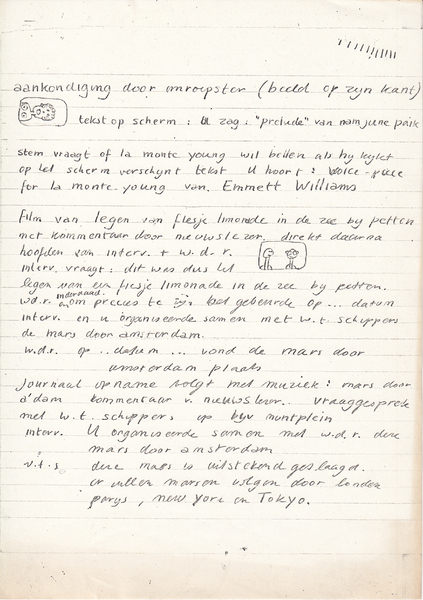 aankondiging door omroepster (beeld op zyn kant)
tekst op scherm : U zag : "prelude" van nam june paik
stem vraagt of la monte young wil bellen als hy kykt
op het scherm verschynt tekst U hoort : voice-piece
for la monte young van Emmett Williams
Film van legen van flesje limonade in de zee by petten
met kommentaar door nieuwslezer. direkt daarna
hoofden van interv. + w.d.r.
interv. vraagt : dit was dus het
legen van een flesje limonade in de zee by petten.
w.d.r. inderdaad. en om precies te zijn het gebeurde op ... datum
interv. en u organiseerde samen met w.t. schippers
de mars door amsterdam.
w.d.r. op ... datum ... vond de mars door
amsterdam plaats
Journaal opname volgt met muziek : mars door
a'dam kommentaar v. nieuwslezer.. vraaggesprek
met w.t. schippers op byv muntplein
interv. U organiseerde samen met w.d.r. deze
mars door amsterdam
deze mars is uitstekend geslaagd.
er zullen marsen volgen door londen
parys, new york en Tokyo.